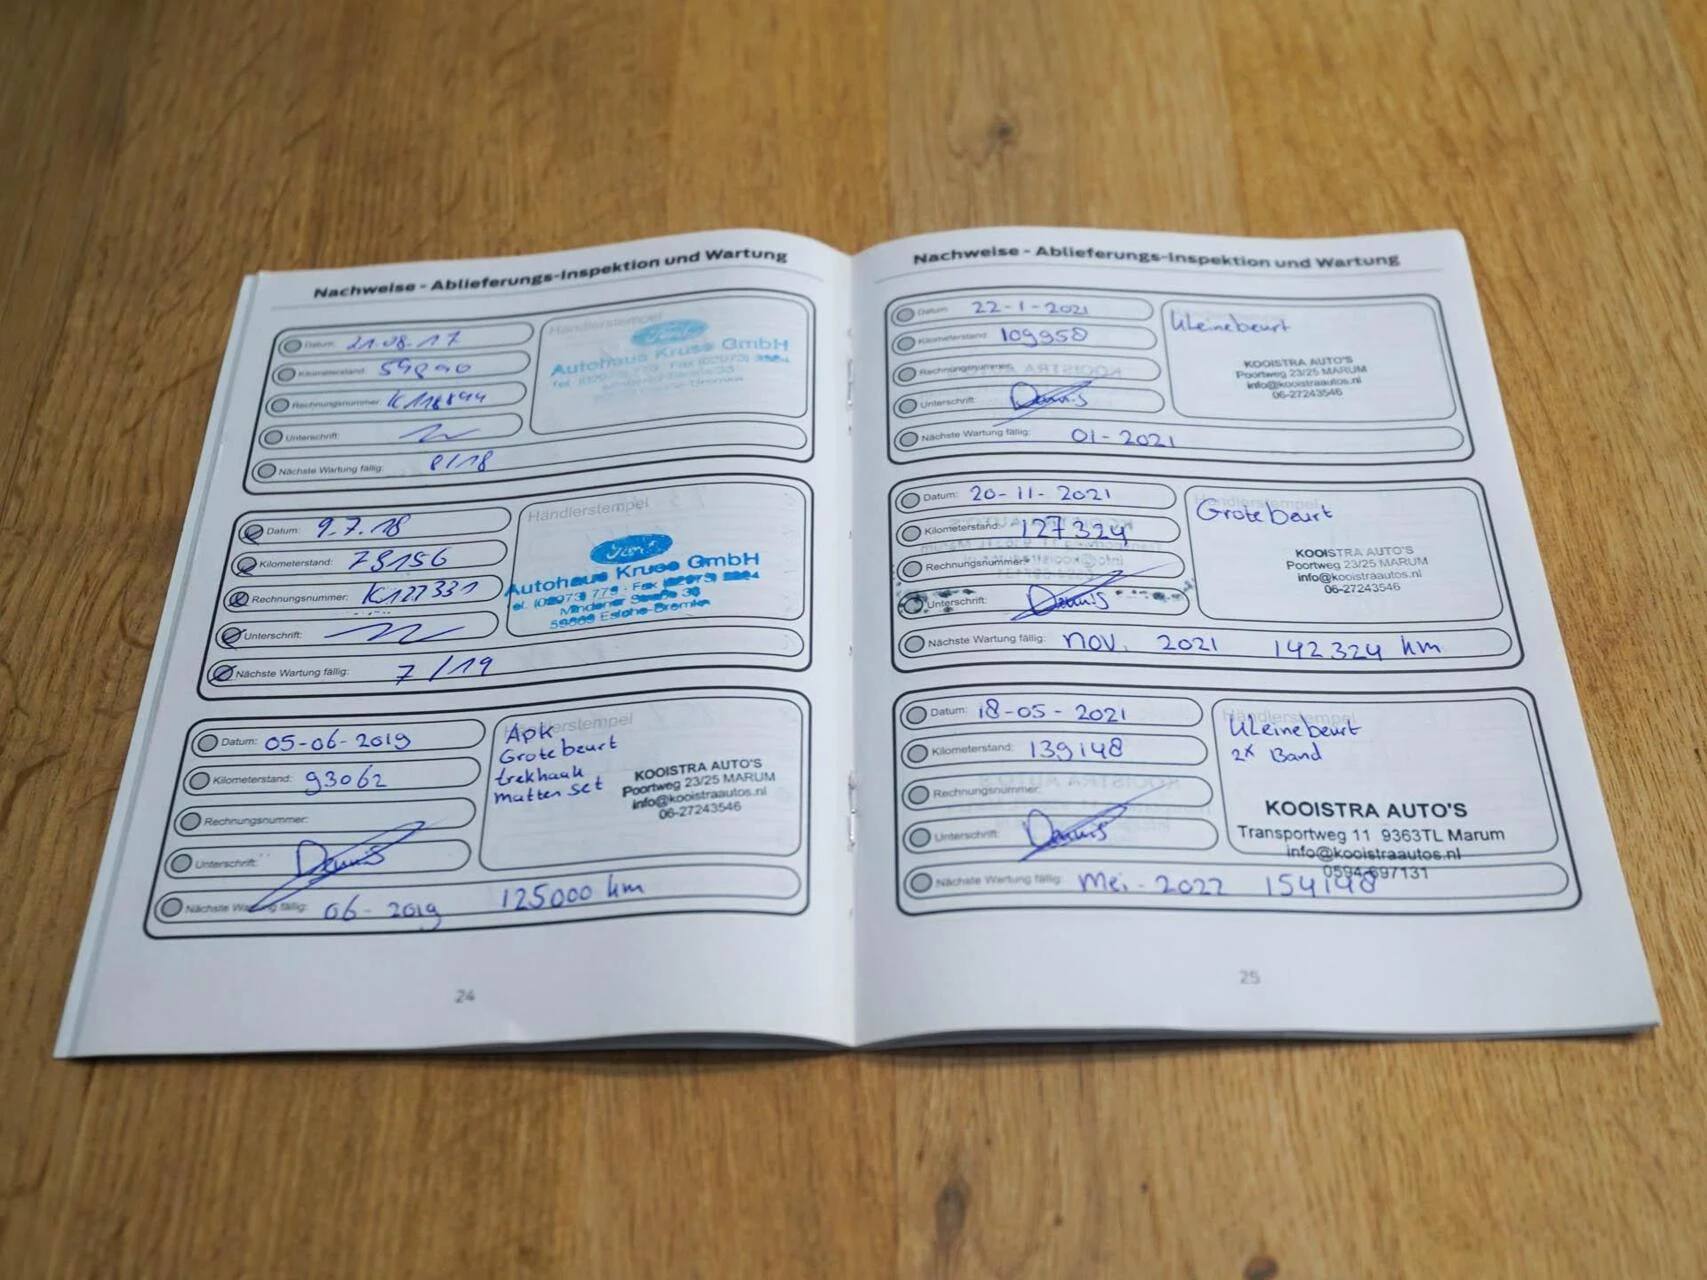 Nachweise - Ablieferungs-Inspektion und Wartung
Datum: 21.08.17
Kilometerstand:
Rechnungsnummer:
Unterschrift:
Nächste Wartung fällig: 8/18
Händlerstempel
Ford
Autohaus Kruse GmbH
Datum: 9.7.18
Kilometerstand: 78156
Rechnungsnummer: K127331
Unterschrift:
Nächste Wartung fällig: 7/19
Händlerstempel
Ford
Autohaus Kruse GmbH
Tel. (02973) 779 - Fax (02973)
Mindener Straße
59889 Eslohe-Bremke
Datum: 05-06-2019
Kilometerstand: 93062
Rechnungsnummer:
Unterschrift: Dennis
Nächste Wartung fällig: 06-2019 125000 km
Händlerstempel
Apk
Grote beurt
trekhaak
matten set
KOOISTRA AUTO'S
Poortweg 23/25 MARUM
info@kooistraautos.nl
06-27243546
24
Nachweise - Ablieferungs-Inspektion und Wartung
Datum: 22-1-2021
Kilometerstand: 109958
Rechnungsnummer:
Unterschrift: Dennis
Nächste Wartung fällig: 01-2021
Kleine beurt
KOOISTRA AUTO'S
Poortweg 23/25 MARUM
info@kooistraautos.nl
06-27243546
Datum: 20-11-2021
Kilometerstand: 127324
Rechnungsnummer:
Unterschrift: Dennis
Nächste Wartung fällig: nov. 2021 142324 km
Händlerstempel
Grote beurt
KOOISTRA AUTO'S
Poortweg 23/25 MARUM
info@kooistraautos.nl
06-27243546
Datum: 18-05-2021
Kilometerstand: 139148
Rechnungsnummer:
Unterschrift: Dennis
Nächste Wartung fällig: Mei-2022 154148
Händlerstempel
Kleine beurt
2x Band
KOOISTRA AUTO'S
Transportweg 11 9363TL Marum
info@kooistraautos.nl
0594-697131
25